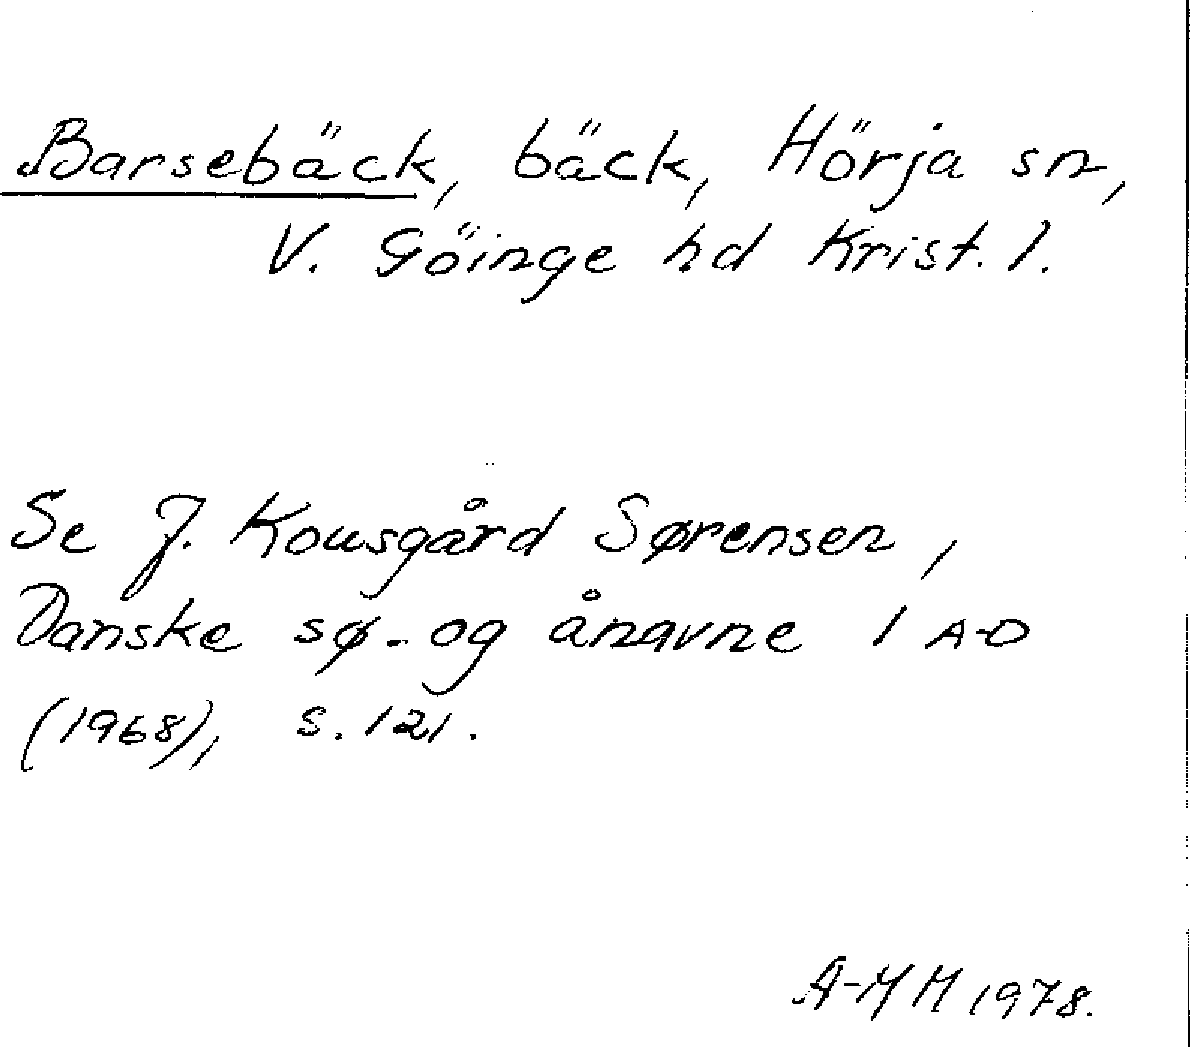 Barsebäck, bäck, Hörja sn,
V. Göinge hd Krist. l.
Se J. Kousgård Sørensen,
Danske sø- og ånavne 1 A-D
(1968), s. 121.
A-MM 1978.